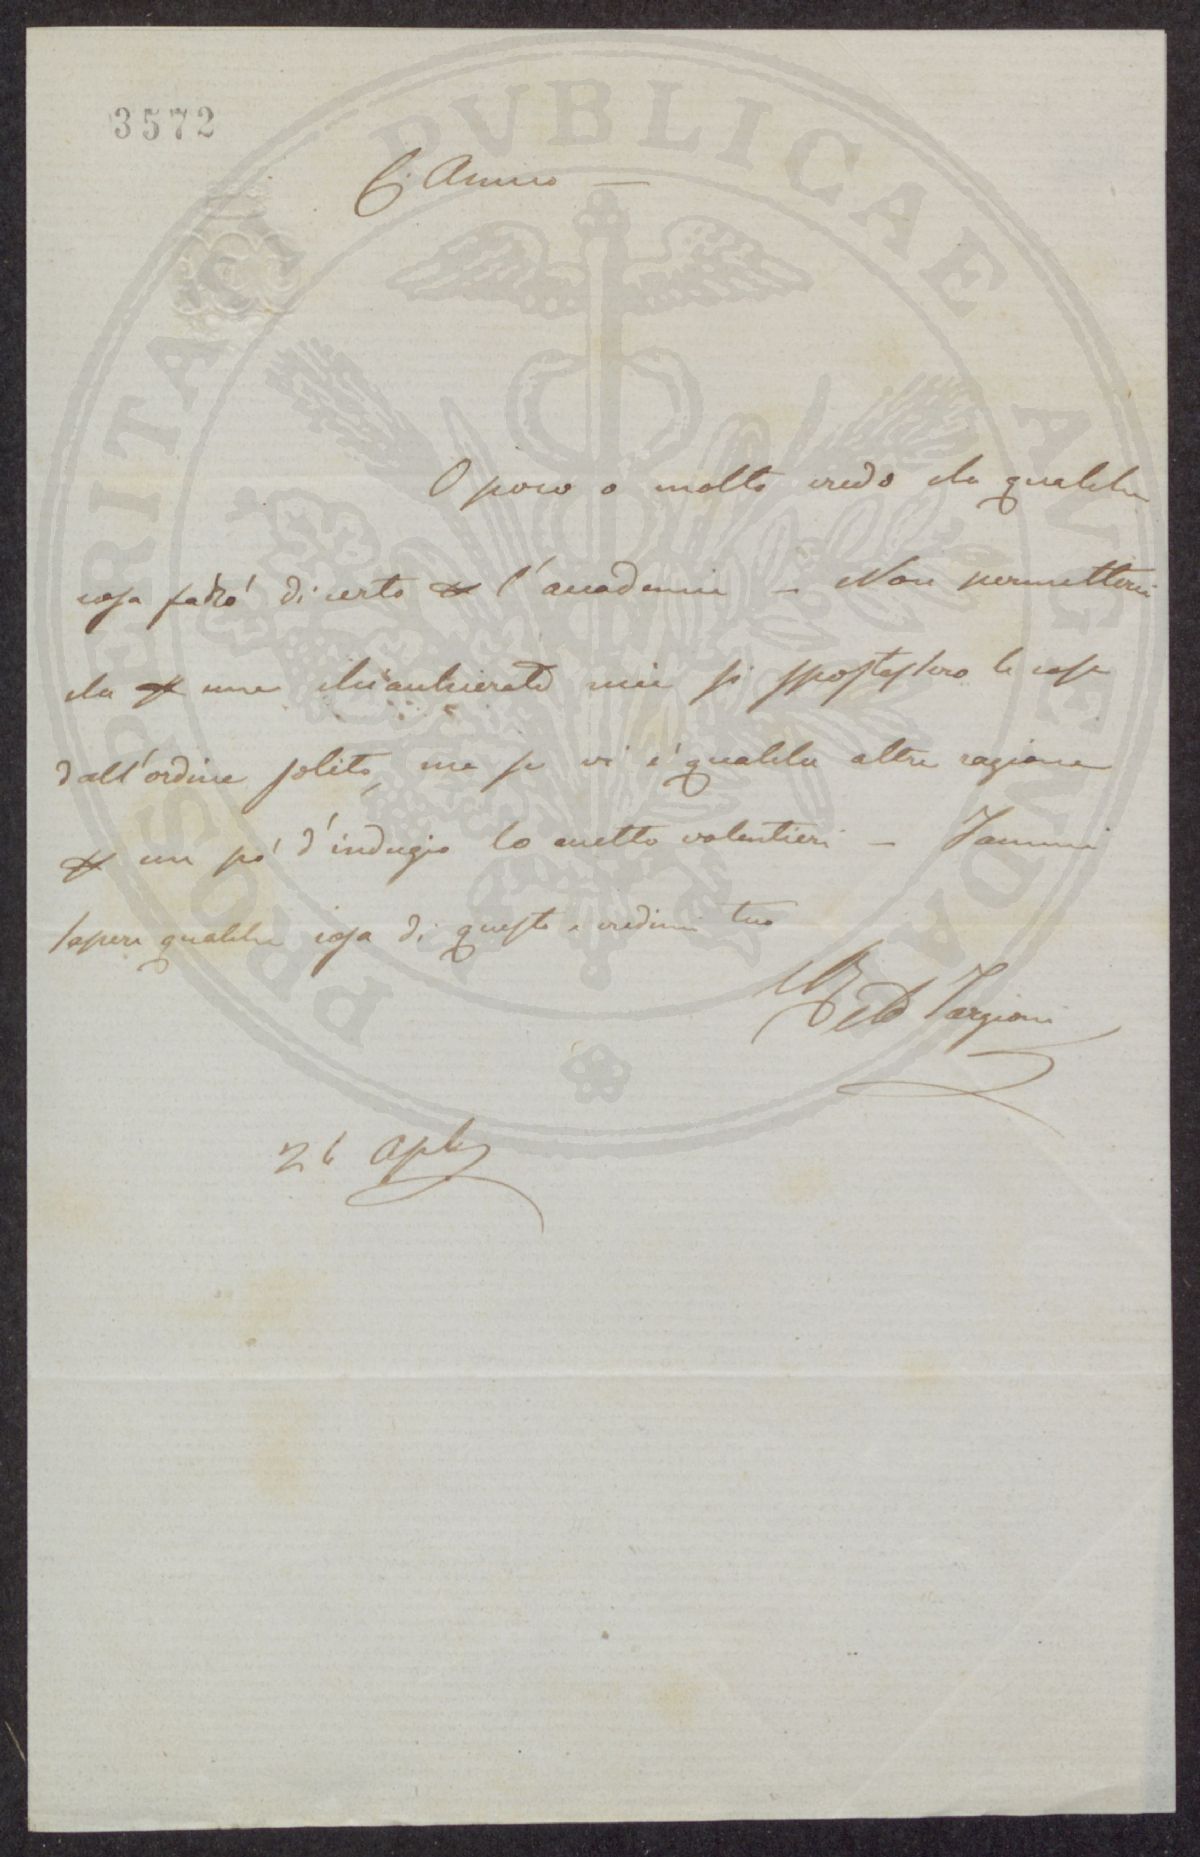 3572
C. Amico —
O poco o molto credo che qualche
cosa farò di certo p l'accademia — Non permetterei
che p una chiacchierata mia si spostassero le cose
dall'ordine solito, ma se vi è qualche altra ragione
p un pò d'indugio lo accetto volentieri — Fammi
sapere qualche cosa di questo e credimi tuo
Targioni
26 Aple
PROSPERITATI PVBLICAE AVGENDAE